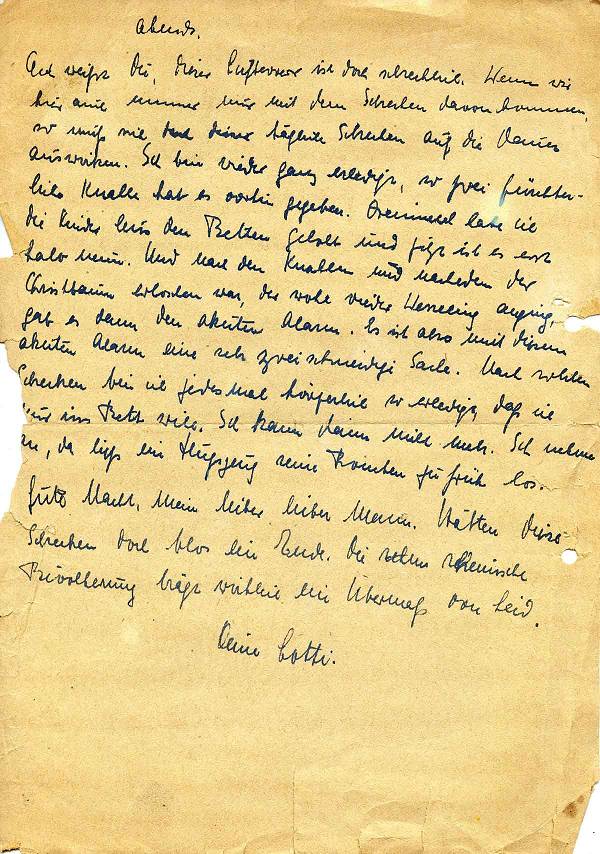 Abends.
Ach weißt Du, dieser Luftterror ist doch schrecklich. Wenn wir
hier auch immer nur mit dem Schrecken davon kommen,
so muß sich doch dieser tägliche Schrecken auf die Dauer
auswirken. Ich bin wieder ganz erledigt, so zwei fürchter-
liche Knalle hat es vorhin gegeben. Dreimal habe ich
die Kinder aus den Betten geholt und jetzt ist es erst
halb neun. Und nach den Knallen und nachdem der
Christbaum erloschen war, der wohl wieder Wesseling anging,
gab es dann den akuten Alarm. Es ist also mit diesem
akuten Alarm eine sehr zweischneidige Sache. Nach solchen
Schrecken bin ich jedesmal körperlich so erledigt, daß ich
nur ins Bett will. Ich kann dann nicht mehr. Ich nehme
an, da ließ ein Flugzeug seine Bomben zu früh los.
Gute Nacht, mein lieber lieber Mann. Hätten diese
Schrecken doch blos ein Ende. Die rheinische
Bevölkerung trägt wirklich ein Übermaß von Leid.
Deine Lotti.